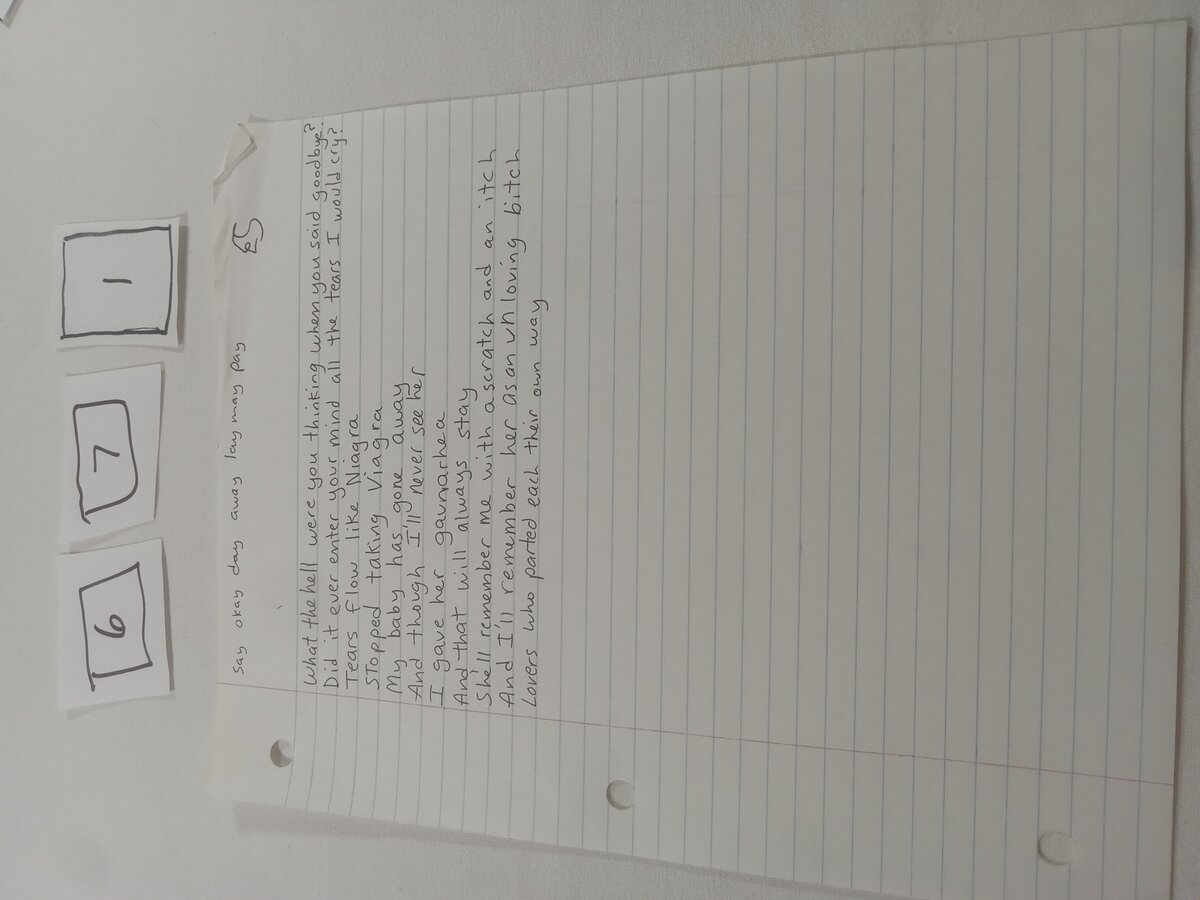 6 7 1
Say okay day away lay may pay
What the hell were you thinking when you said goodbye?
Did it ever enter your mind all the tears I would cry?
Tears flow like Niagra
Stopped taking Viagra
My baby has gone away
And though I'll never see her
I gave her gaunarhea
And that will always stay
She'll remember me with a scratch and an itch
And I'll remember her as an unloving bitch
Lovers who parted each their own way